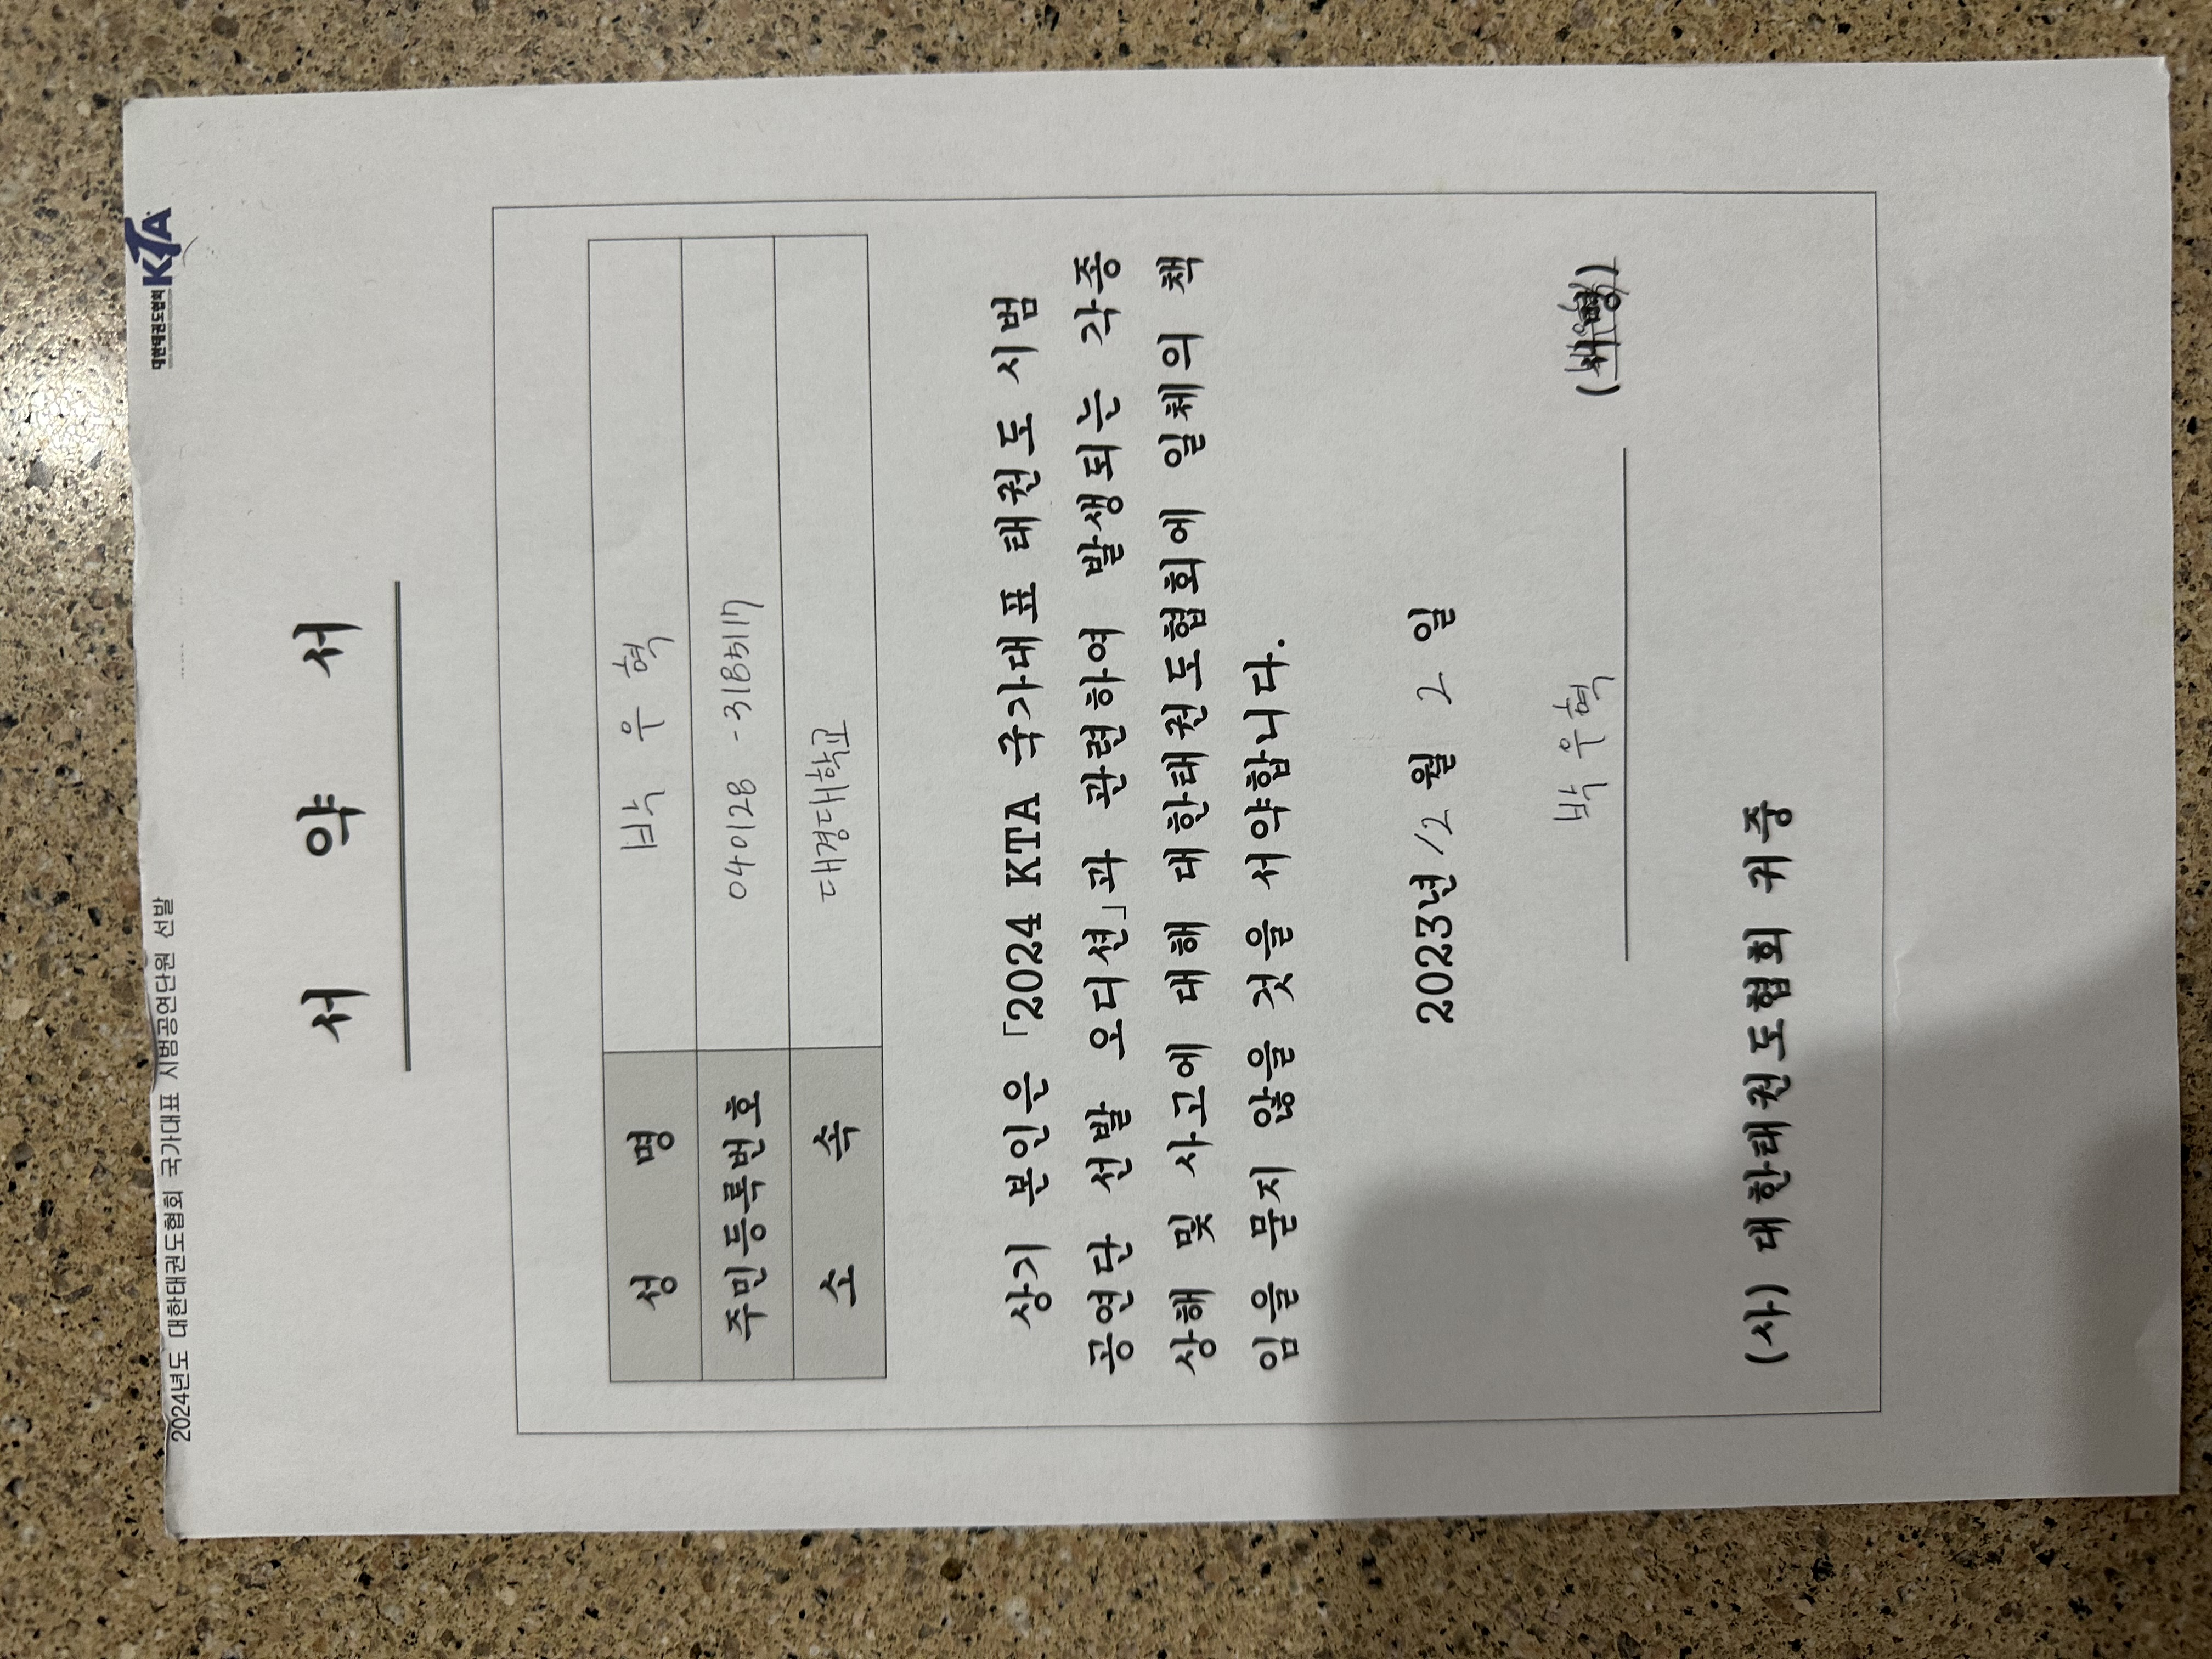 2024년도 대한태권도협회 국가대표 시범공연단원 선발
대한태권도협회 KTA
서 약 서
성 명 박 우 혁
주민등록번호 040128 - 3185117
소 속 대경대학교
상기 본인은 「2024 KTA 국가대표 태권도 시범
공연단 선발 오디션」과 관련하여 발생되는 각종
상해 및 사고에 대해 대한태권도협회에 일체의 책
임을 묻지 않을 것을 서약합니다.
2023년 12월 2일
박 우 혁 (서명)
(사) 대한태권도협회 귀중